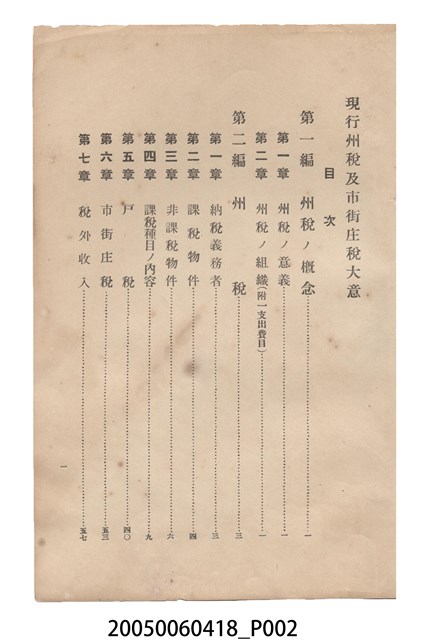 現行州稅及市街庄稅大意
目次
第一編 州稅ノ概念……一
第一章 州稅ノ意義……一
第二章 州稅ノ組織(附一支出費目)……一
第二編 州稅……三
第一章 納稅義務者……三
第二章 課稅物件……四
第三章 非課稅物件……六
第四章 課稅種目ノ內容……九
第五章 戶稅……四〇
第六章 市街庄稅……五三
第七章 稅外收入……五七
一
20050060418_P002